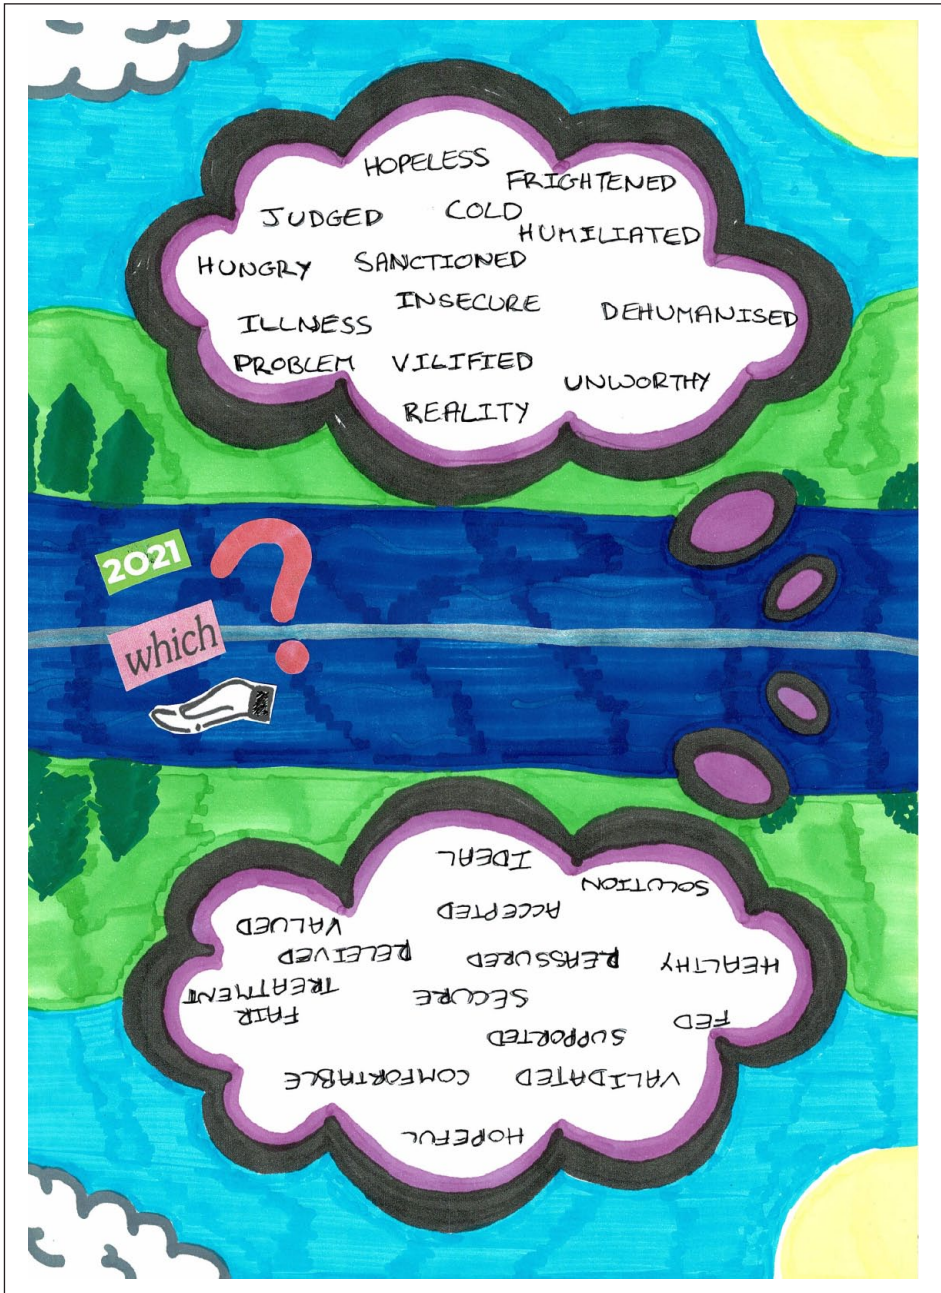 HOPELESS
FRIGHTENED
JUDGED COLD
HUMILIATED
HUNGRY SANCTIONED
INSECURE
DEHUMANISED
ILLNESS
PROBLEM VILIFIED
UNWORTHY
REALITY
2021
?
which
HOPEFUL
VALIDATED COMFORTABLE
SUPPORTED
FED
SECURE
FAIR
TREATMENT
HEALTHY REASSURED
VALUED
ACCEPTED
SOLUTION
IDEAL